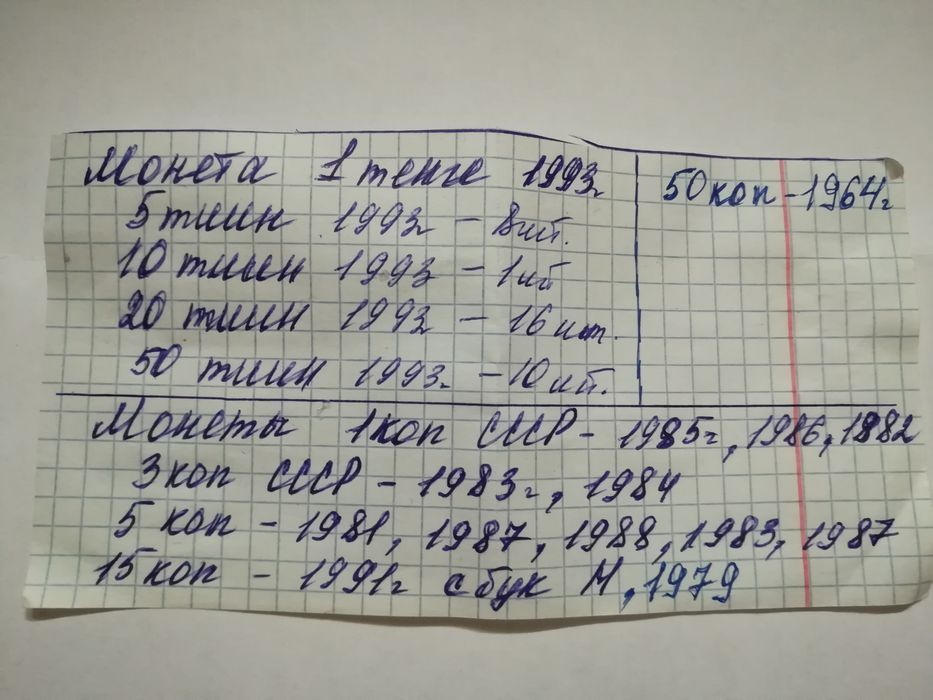 Монета 1 тенге 1993г
5 тиин 1993г - 8шт.
10 тиин 1993 - 1шт
20 тиин 1993 - 16 шт.
50 тиин 1993г. - 10 шт.
50 коп - 1964г
Монеты 1 коп СССР - 1985г, 1986, 1982
3 коп СССР - 1983г, 1984
5 коп - 1981, 1987, 1988, 1983, 1987
15 коп - 1991г с бук М, 1979